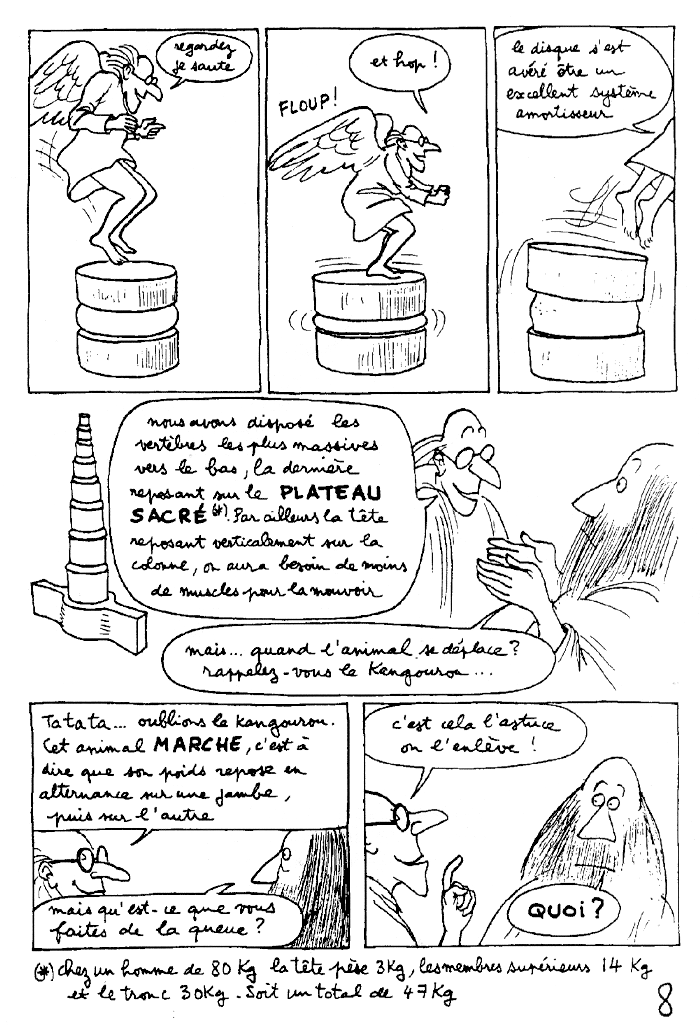 regardez
je saute
FLOUP!
et hop !
le disque s'est
avéré être un
excellent système
amortisseur
nous avons disposé les
vertèbres les plus massives
vers le bas, la dernière
reposant sur le PLATEAU
SACRÉ(*). Par ailleurs la tête
reposant verticalement sur la
colonne, on aura besoin de moins
de muscles pour la mouvoir
mais... quand l'animal se déplace?
rappelez-vous le Kangourou...
Tatata... oublions le kangourou.
Cet animal MARCHE, c'est à
dire que son poids repose en
alternance sur une jambe,
puis sur l'autre
mais qu'est-ce que vous
faites de la queue ?
c'est cela l'astuce
on l'enlève !
QUOI ?
(*) chez un homme de 80 Kg la tête pèse 3Kg, les membres supérieurs 14 Kg
et le tronc 30Kg. Soit un total de 47Kg
8